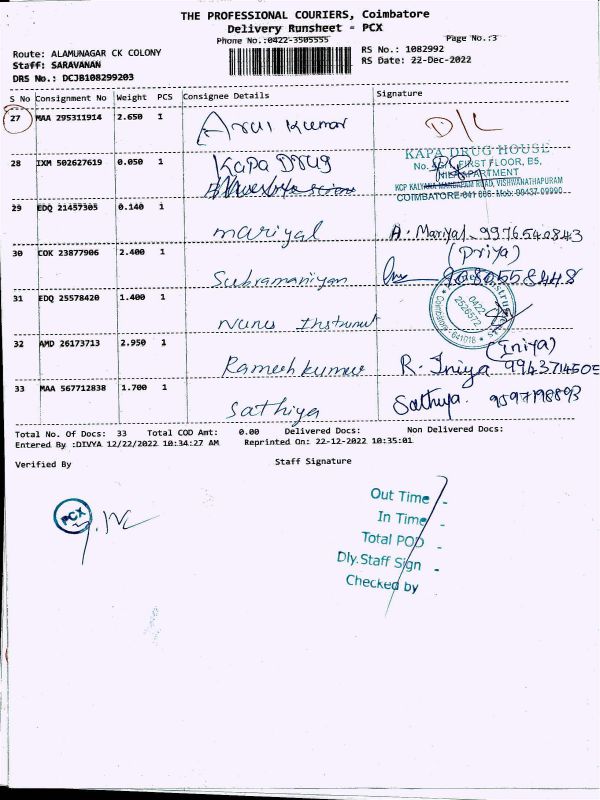 THE PROFESSIONAL COURIERS, Coimbatore
Delivery Runsheet - PCX
Phone No.:0422-3505555 Page No.:3
Route: ALAMUNAGAR CK COLONY RS No.: 1082992
Staff: SARAVANAN RS Date: 22-Dec-2022
DRS No.: DCJB108299203
S No Consignment No Weight PCS Consignee Details Signature
27 MAA 295311914 2.650 1 Arul Kumar D/L
28 IXM 502627619 0.050 1 Kapa Drug
KAPA DRUG HOUSE
FIRST FLOOR, B5,
KCP KALYANA MANDAPAM ROAD, VISHWANATHAPURAM
COIMBATORE-641 006 Mob: 98437 09990
29 EDQ 21457305 0.140 1 mariyal A. Mariyal 9976540843
30 COK 23877906 2.400 1 Subramaniyan (Priya)
9080558448
31 EDQ 25578420 1.400 1 Nunes Instrument
0422
2526572
Coimbatore 641018
32 AMD 26173713 2.950 1 Ramesh kumar (Iniya)
R. Iniya 9943714505
33 MAA 567712838 1.700 1 Sathiya Sathiya. 9597198893
Total No. Of Docs: 33 Total COD Amt: 0.00 Delivered Docs: Non Delivered Docs:
Entered By :DIVYA 12/22/2022 10:34:27 AM Reprinted On: 22-12-2022 10:35:01
Verified By Staff Signature
PCX
Out Time -
In Time -
Total POD -
Dly.Staff Sign -
Checked by